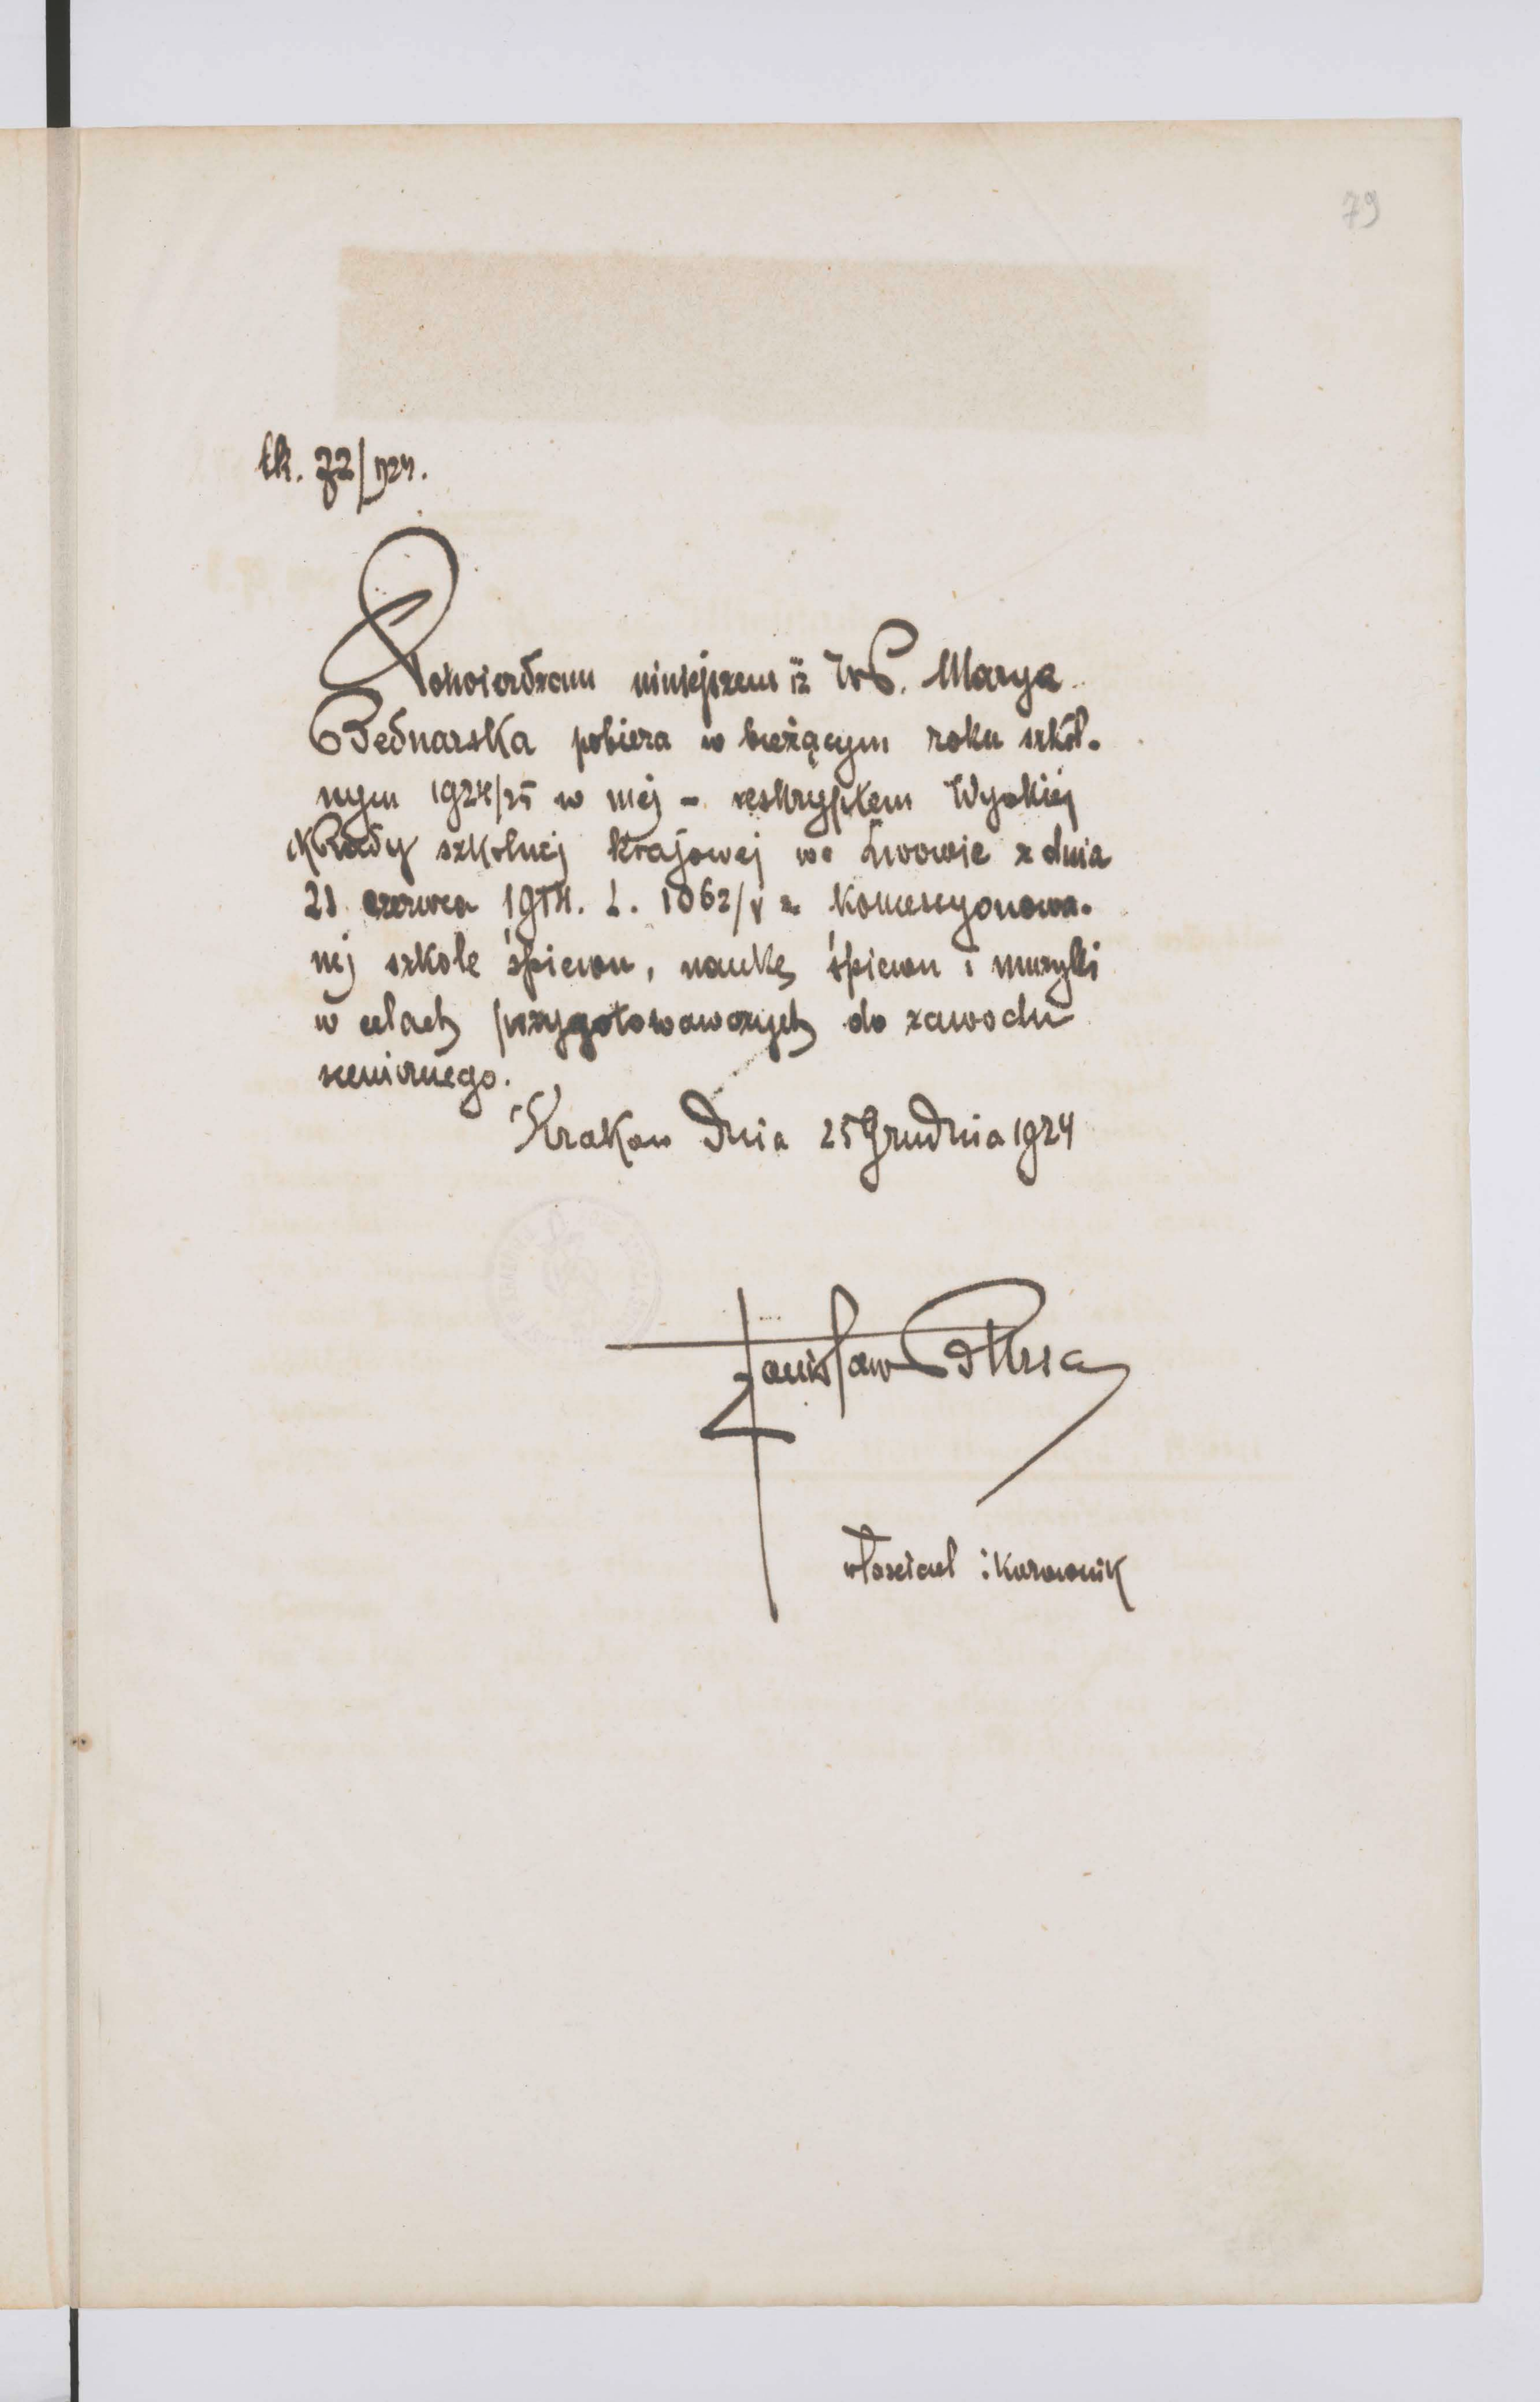 79
lk. 72/924.
Potwierdzam niniejszem iż WP. Marya
Bednarska pobiera w bieżącym roku szkol-
nym 1924/25 w mej - reskryptem Wysokiej
Rady szkolnej krajowej we Lwowie z dnia
21 czerwca 1914. L. 1062/V - koncesyonowa-
nej szkole śpiewu, naukę śpiewu i muzyki
w celach przygotowawczych do zawodu
scenicznego.
Krakow dnia 25 Grudnia 1924
Stanisław
właściciel i kierownik